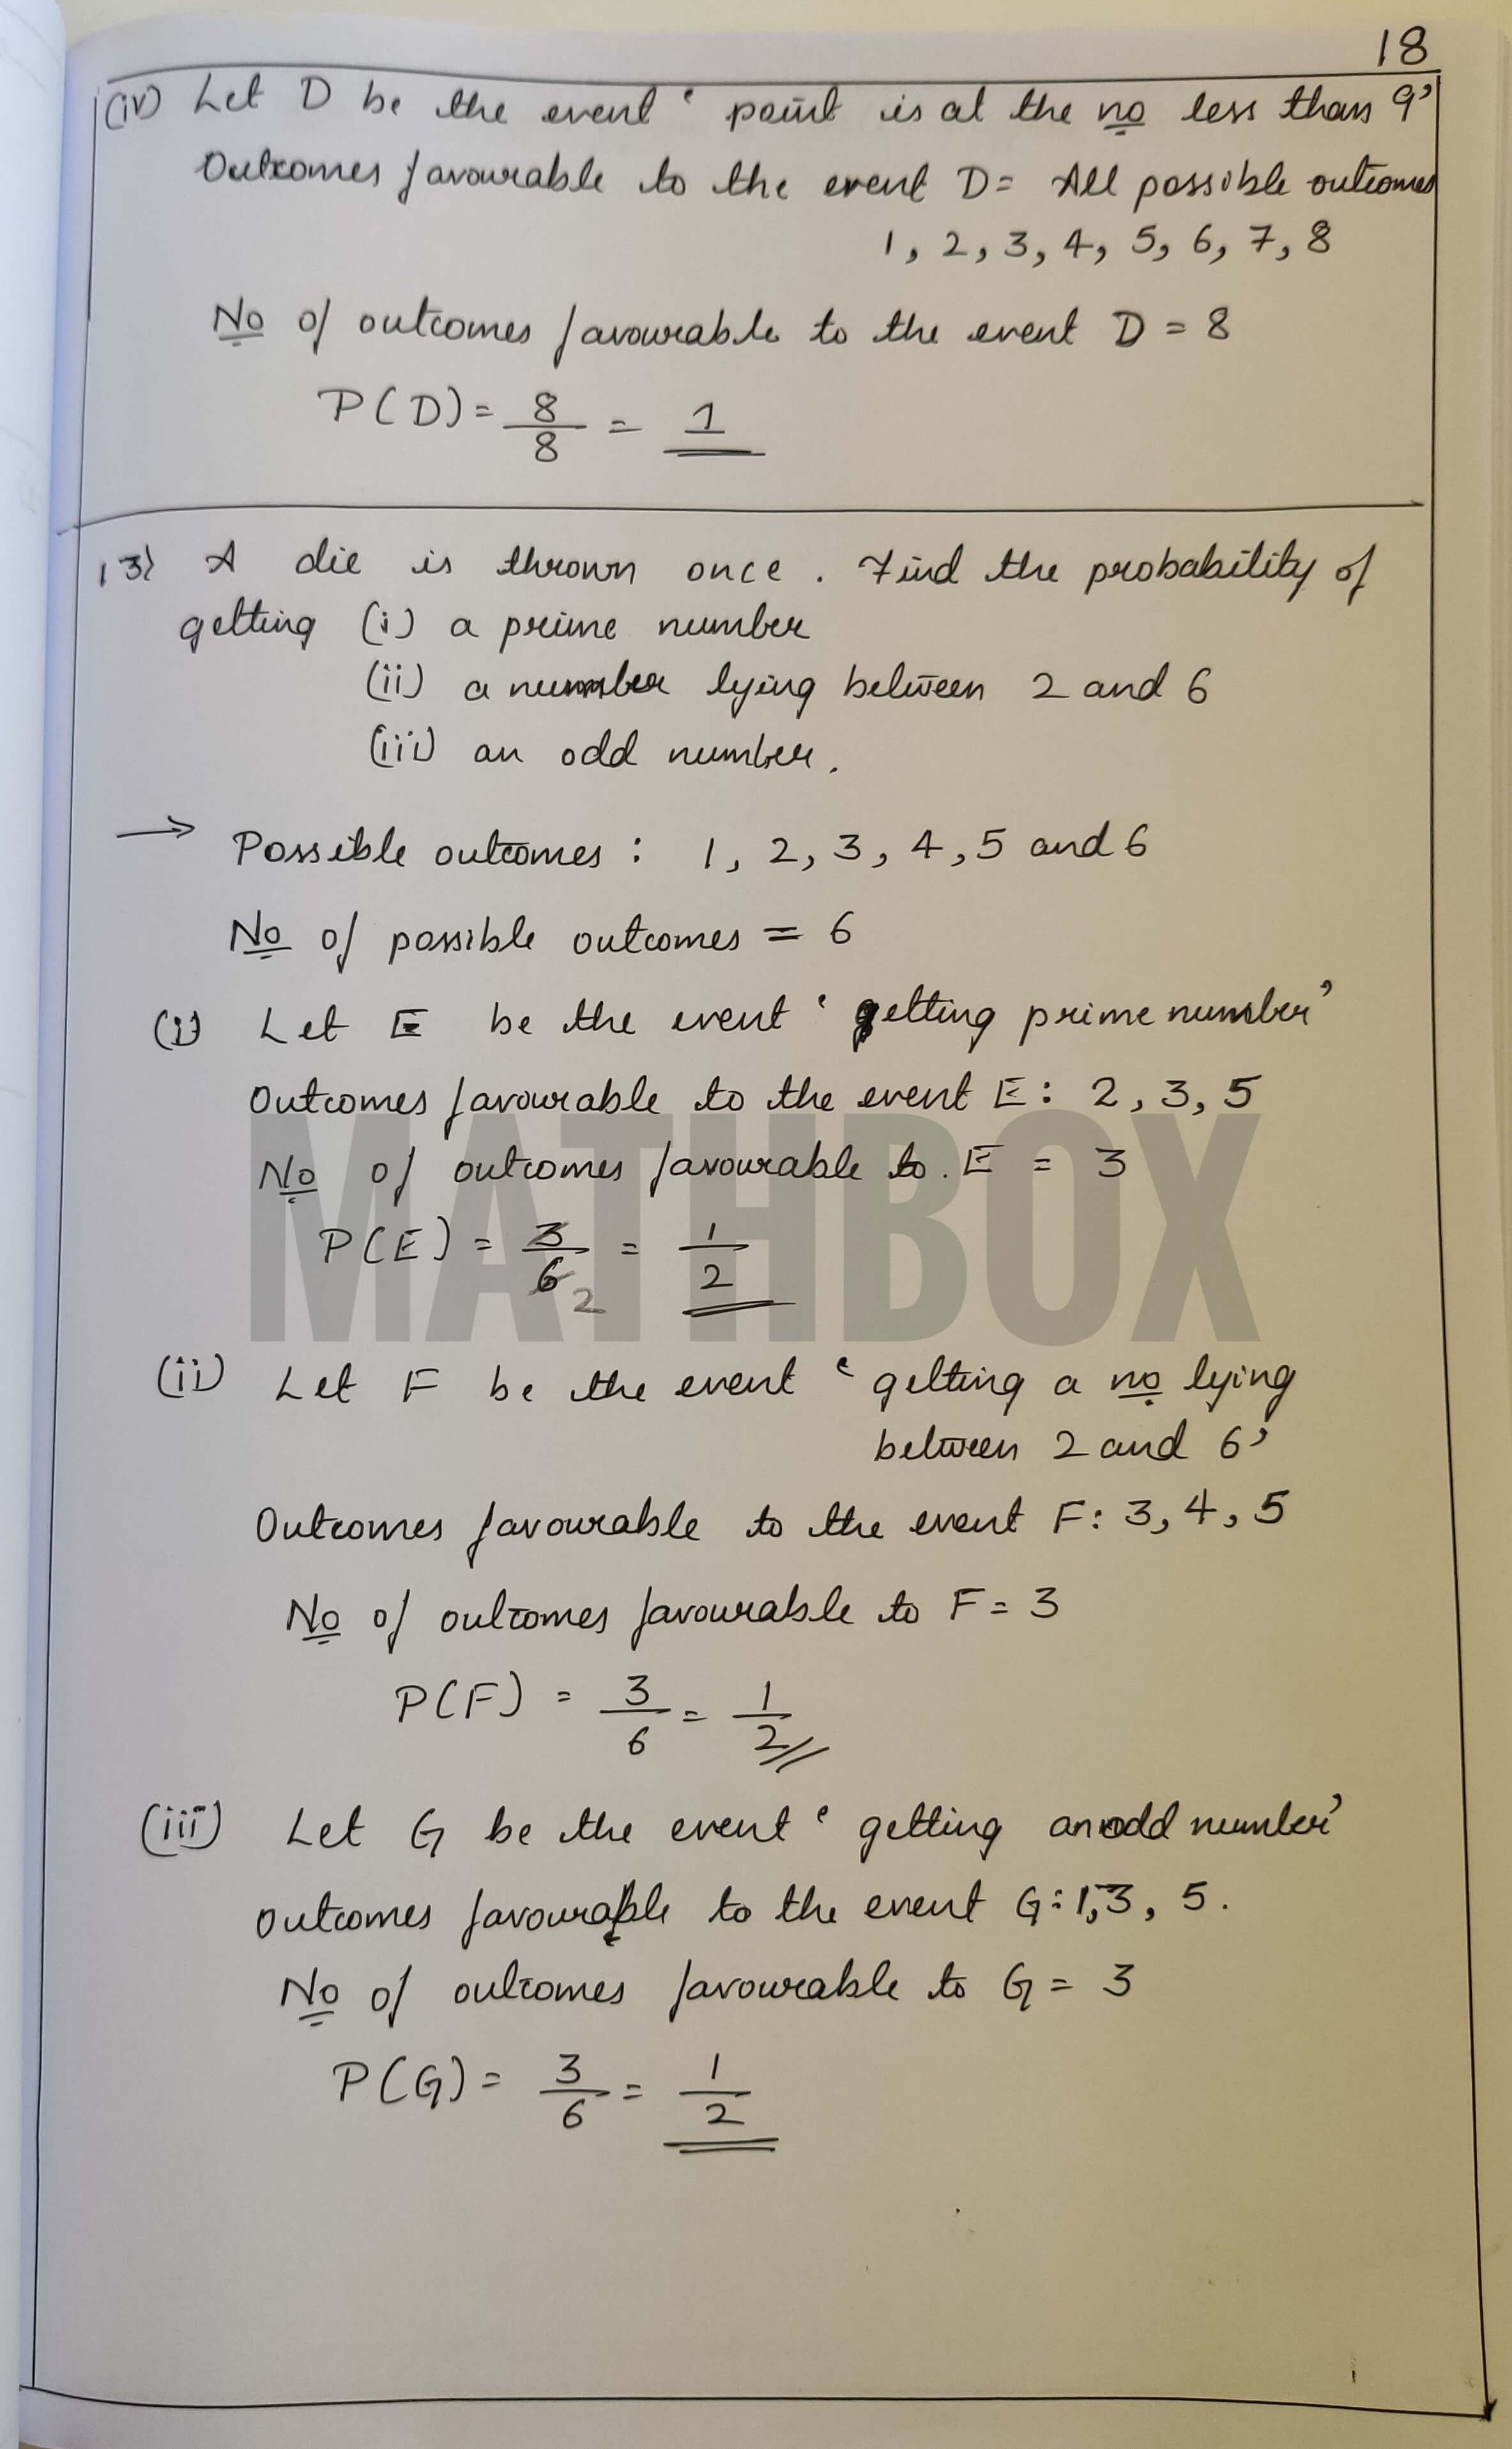 18
(iv) Let D be the event ' point is at the no less than 9'
Outcomes favourable to the event D = All possible outcomes
1, 2, 3, 4, 5, 6, 7, 8
No of outcomes favourable to the event D = 8
P(D) = 8/8 = 1
13) A die is thrown once. Find the probability of
getting (i) a prime number
(ii) a number lying between 2 and 6
(iii) an odd number.
→ Possible outcomes : 1, 2, 3, 4, 5 and 6
No of possible outcomes = 6
(i) Let E be the event ' getting prime number'
Outcomes favourable to the event E : 2, 3, 5
No of outcomes favourable to. E = 3
P(E) = 3/6 2 = 1/2
MATHBOX
(ii) Let F be the event ' getting a no lying
between 2 and 6'
Outcomes favourable to the event F: 3, 4, 5
No of outcomes favourable to F = 3
P(F) = 3/6 = 1/2
(iii) Let G be the event ' getting an odd number'
Outcomes favourable to the event G : 1, 3, 5.
No of outcomes favourable to G = 3
P(G) = 3/6 = 1/2